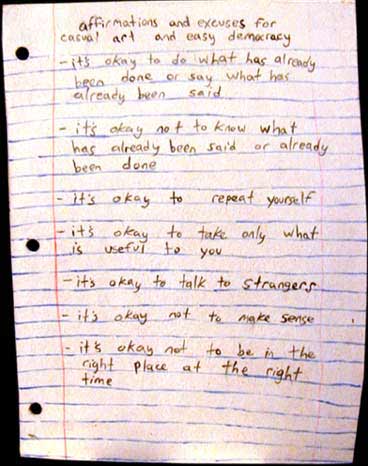 affirmations and excuses for
casual art and easy democracy
- it's okay to do what has already
been done or say what has
already been said
- it's okay not to know what
has already been said or already
been done
- it's okay to repeat yourself
- it's okay to take only what
is useful to you
- it's okay to talk to strangers
- it's okay not to make sense
- it's okay not to be in the
right place at the right
time